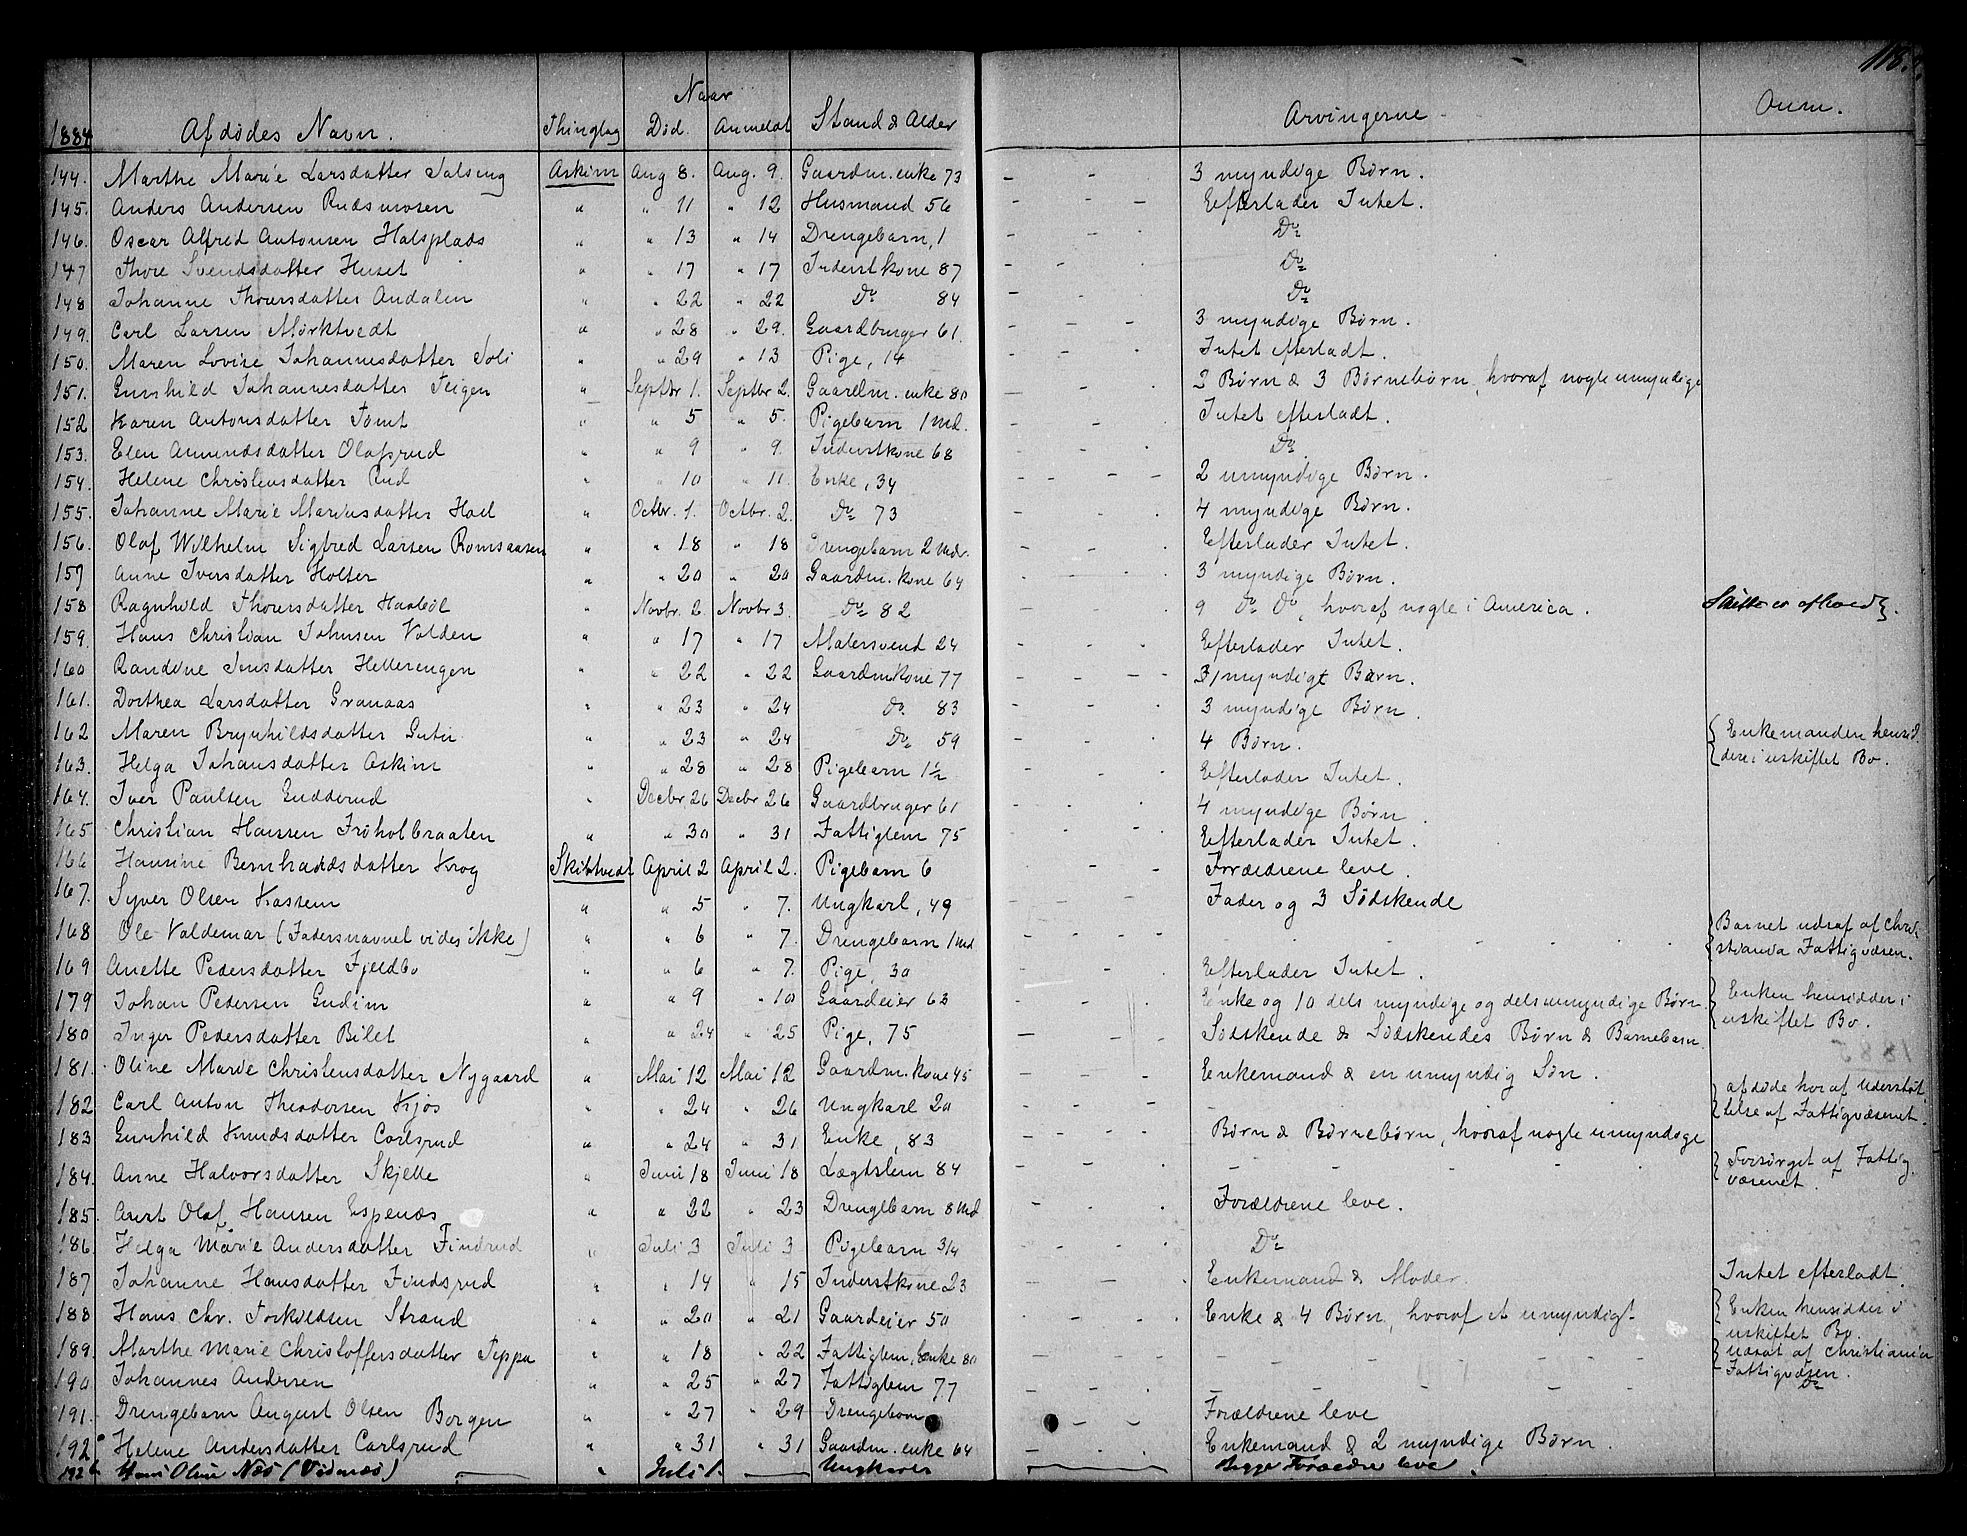 118.
Naar
1884 Afdødes Navn. Thinglag Død. Anmeldt Stand & Alder Arvingerne Anm.
144. Marthe Marie Larsdatter Solsing Askim Aug 8. Aug. 9. Gaardm. enke 73 - - - 3 myndige Børn.
145. Anders Andersen Rudsmosen " " 11 " 12 Husmand 56 - - - Efterlader Intet.
146. Oscar Alfred Antonsen Halsplads " " 13 " 14 Drengebarn, 1 - - - Do
147 Thore Svendsdatter Huset " " 17 " 17 Inderstkone 87 - - - Do
148 Johanne Thoresdatter Andalen " " 22 " 22 Do 84 - - - Do
149. Carl Larsen Mørktvedt " " 28 " 29. Gaardbruger 61. - - - 3 myndige Børn.
150. Maren Lovise Johannesdatter Soli " " 29 " 13 Pige, 14 - - - Intet efterladt.
151. Gunhild Johannesdatter Teigen " Septbr 1. Septbr 2. Gaardm. enke 80 - - - 2 Børn & 3 Børnebørn, hvoraf nogle umyndige
152 Karen Antonsdatter Tomt " " 5 " 5. Pigebarn 1 Md. - - - Intet efterladt.
153. Elen Amundsdatter Olafsrud " " 9 " 9. Inderstkone 68 - - - Do
154. Helene Christensdatter Rud " " 10 " 11. Enke, 34 - - - 2 umyndige Børn.
155. Johanne Marie Mariusdatter Hoel " Octbr. 1. Octbr. 2. Do 73 - - - 4 myndige Børn.
156. Olaf Wilhelm Sigfred Larsen Romsaasen " " 18 " 18 Drengebarn 2 Mdr. - - - Efterlader Intet.
157 Anne Iversdatter Holter " " 20 " 20 Gaardm. kone 64 - - - 3 myndige Børn.
158 Ragnhild Thoresdatter Haabøl " Novbr. 2 Novbr 3. Do 82 - - - 9 Do Do, hvoraf nogle i America. Skifte er afhold}.
159. Hans Christian Johnsen Volden " " 17 " 17 Malersvend 24 - - - Efterlader Intet.
160 Randine Jensdatter Hellerengen " " 22 " 22 Gaardm. kone 77 - - - 1 myndigt Barn.
161. Dorthea Larsdatter Granaas " " 23 " 24 Do 83 - - - 3 myndige Børn.
162 Maren Brynhildsdatter Guter " " 23 " 24 Do 59 - - - 4 Børn. { Enkemanden hensid-
{ der i uskiftet Bo.
163. Helga Johansdatter Askim " " 28 " 28 Pigebarn 1½ - - - Efterlader Intet.
164. Iver Paulsen Gudderud " Decbr 26 Decbr 26 Gaardbruger 61 - - - 4 myndige Børn
165 Christian Hansen Frøholbraaten " " 30 " 31 Fattiglem 75 - - - Efterlader Intet.
166 Hansine Bernhardsdatter Krog Skibtvedt April 2 April 2. Pigebarn 6 - - Forældrene leve.
167. Syver Olsen Kassem " " 5 " 7. Ungkarl, 49 - - - Fader og 3 Södskende
168 Ole Valdemar (Fadersnavnet vides ikke) " " 6 " 7. Drengebarn 1 Md - - - - - - { Barnet udsat af Chri-
{ stiania Fattigvæsen.
169 Anette Pedersdatter Fjeldbo " " 6 " 7. Pige, 30 - - - Efterlader Intet.
179 Johan Pedersen Gudim " " 9 " 10 Gaardeier 63 - - - Enke og 10 dels myndige og dels umyndige Børn. { Enken hensidder i
{ uskiftet Bo.
180 Inger Pedersdatter Bilet " " 24 " 25 Pige, 75 - - - Södskende & Södskendes Børn & Barnebarn.
181. Oline Marie Christensdatter Nygaard " Mai 12 Mai 12 Gaardm. kone 45 - - - Enkemand & en umyndig Søn.
182 Carl Anton Theodorsen Kjos " " 24 " 26 Ungkarl 20 - - - { afdøde har af Understøt-
{ telse af Fattigvæsenet.
183 Gunhild Knudsdatter Carlsrud " " 24 " 31 Enke, 83 - - - Børn & Børnebørn, hvoraf nogle umyndige
184. Anne Halvorsdatter Skjelle " Juni 18 Juni 18 Lægdslem 84 - - - - - - { Forsørget af Fattig-
{ væsenet.
185. Axel Olaf Hansen Espenæs " " 22 " 23 Drengebarn 8 Md - - - Forældrene leve.
186. Helga Marie Andersdatter Findsrud " Juli 3 Juli 3 Pigebarn 3/4 - - - Do
187 Johanne Hansdatter Findsrud " " 14 " 15 Inderstkone 23 - - - Enkemand & Moder. Intet efterladt.
188 Hans Chr. Torkildsen Strand " " 20 " 21 Gaardeier 50 - - - Enke & 4 Børn, hvoraf et umyndigt { Enken hensidder i
{ uskiftet Bo.
189. Marthe Marie Christoffersdatter Teppa " " 18 " 22 Fattiglem, enke 80 - - - - - - { Udsat af Christiania
{ Fattigvæsen.
190 Johannes Andersen " " 25 " 27 Fattiglem 77 - - - - - - Do
191. Drengebarn August Olsen Borgen " " 27 " 29 Drengebarn - - - Forældrene leve
192 Helene Andersdatter Carlsrud " " 31 " 31 Gaardm. enke 64 - - - Enkemand & 2 myndige Børn.
192 b Oline Næs (Vidnæs) " Juli 1. Ungkarls Begge Forældre leve.